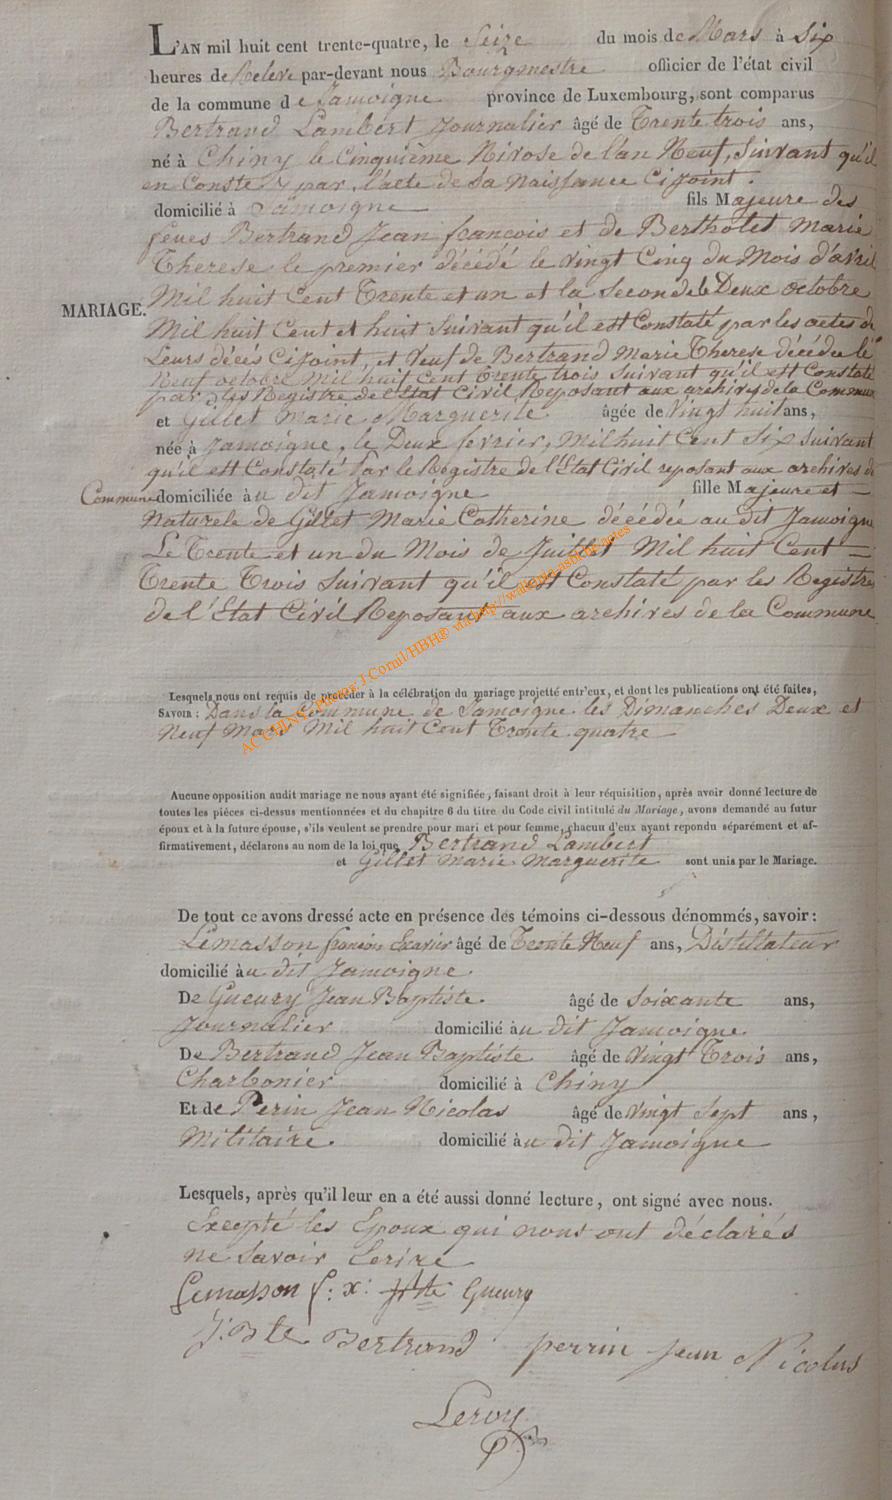 L'AN mil huit cent trente-quatre, le Seize du mois de Mars à Six
heures de Relevé par-devant nous Bourgmestre officier de l'état civil
de la commune de Jamoigne province de Luxembourg, sont comparus
Bertrand Lambert Journalier âgé de Trente trois ans,
né à Chiny le Cinquième Nivose de l'an Neuf, Suivant qu'il
en Conste par l'acte de Sa Naissance Cijoint.
domicilié à Jamoigne fils Majeure des
feues Bertrand Jean françois et de Bertholet Marie
Therese, le premier décédé le Vingt Cinq du Mois d'avril
Mil huit Cent Trente et un et la Seconde le Deux octobre
MARIAGE. Mil huit Cent et huit Suivant qu'il est Constaté par les actes de
Leurs décès Cijoint, et Veuf de Bertrand Marie Therese décédée le
Neuf octobre Mil huit Cent Trente trois Suivant qu'il est Constaté
par les Registre de l'Etat Civil Reposant aux archives de la Commune
et Gillet Marie Marguerite âgée de Vingt huit ans,
née à Jamoigne, le Deux fevrier, Mil huit Cent Six Suivant
qu'il est Constaté Par le Registre de l'Etat Civil reposant aux archives de
Commune domiciliée àu dit Jamoigne fille Majeure et
Naturele de Gillet Marie Catherine décédée au dit Jamoigne
Le Trente et un du Mois de Juillet Mil huit Cent
Trente Trois Suivant qu'il est Constaté par les Registre
de l'Etat Civil Reposant aux archives de la Commune
Lesquels nous ont requis de procéder à la célébration du mariage projetté entr'eux, et dont les publications ont été faites,
SAVOIR : Dans la Commune de Jamoigne les Dimanches Deux et
Neuf Mars Mil huit Cent Trente quatre
Aucune opposition audit mariage ne nous ayant été signifiée, faisant droit à leur réquisition, après avoir donné lecture de
toutes les pièces ci-dessus mentionnées et du chapitre 6 du titre du Code civil intitulé du Mariage, avons demandé au futur
époux et à la future épouse, s'ils veulent se prendre pour mari et pour femme, chacun d'eux ayant repondu séparément et af-
firmativement, déclarons au nom de la loi que Bertrand Lambert
et Gillet Marie Marguerite sont unis par le Mariage.
De tout ce avons dressé acte en présence des témoins ci-dessous dénommés, savoir :
Lemasson françois Exavier âgé de Trente Neuf ans, Distillateur
domicilié àu dit Jamoigne
De Gueury Jean Baptiste âgé de Soixante ans,
Journalier domicilié àu dit Jamoigne
De Bertrand Jean Baptiste âgé de Vingt Trois ans,
Charbonier domicilié à Chiny
Et de Perin Jean Nicolas âgé de Vingt Sept ans,
Militaire. domicilié àu dit Jamoigne
Lesquels, après qu'il leur en a été aussi donné lecture, ont signé avec nous.
Excepté les Epoux qui nous ont déclarés
ne Savoir Ecrire
Lemasson f: x: Gueury
J. Bte Bertrand perrin Jean Nicolas
Leroy